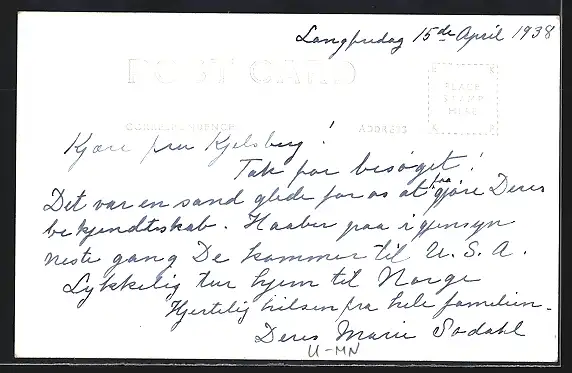 Langfredag 15de April 1938
POST CARD
PLACE
STAMP
HERE
CORRESPONDENCE ADDRESS
Kjære fru Kjelsberg!
Tak for besøget!
Det var en sand glede for os at faa gjøre Deres
bekjendtskab. Haaber paa igjensyn
neste gang De kommer til U.S.A.
Lykkelig tur hjem til Norge
Hjertelig hilsen fra hele familien.
Deres Marie Sodahl
U-MN